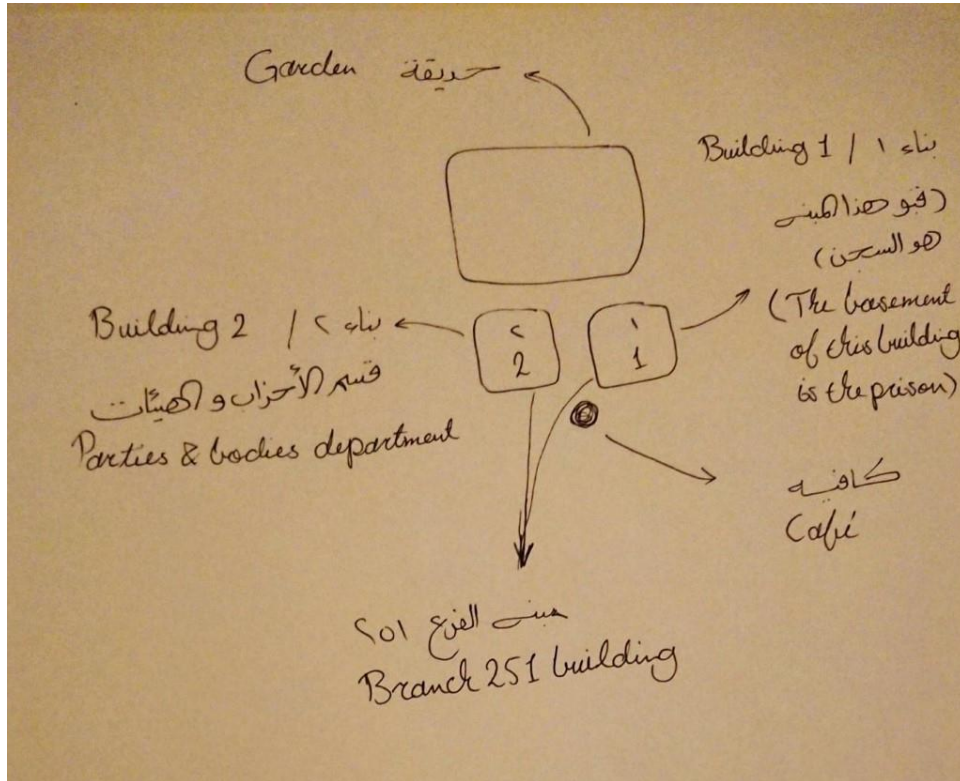 Garden حديقة
Building 1 / ١ بناء
(قبو هذا المبنى
هو السجن)
(The basement
of this building
is the prison)
Building 2 / ٢ بناء
قسم الأحزاب و الهيئات
Parties & bodies department
٢
2
١
1
كافيه
Café
مبنى الفرع ٢٥١
Branch 251 building